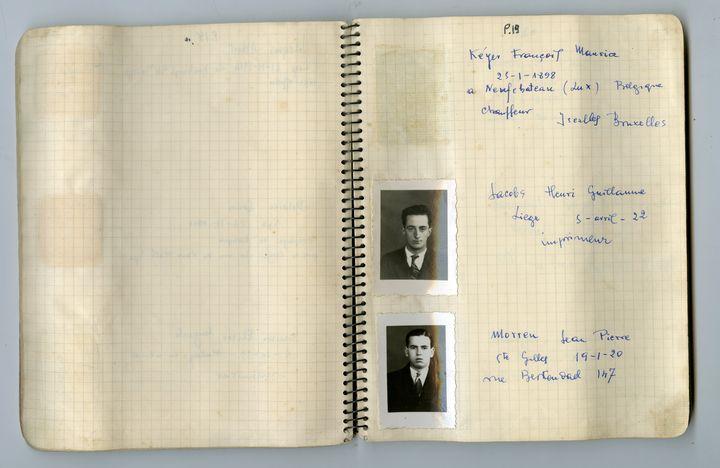 P.19
Kéyer François Maurice
23-1-1898
a Neufchateau (Lux) Belgique
chauffeur Ixelles Bruxelles
Jacobs Henri Guillaume
Liege 5-avril-22
imprimeur
Morren Jean Pierre
St Gilles 19-1-20
rue 147